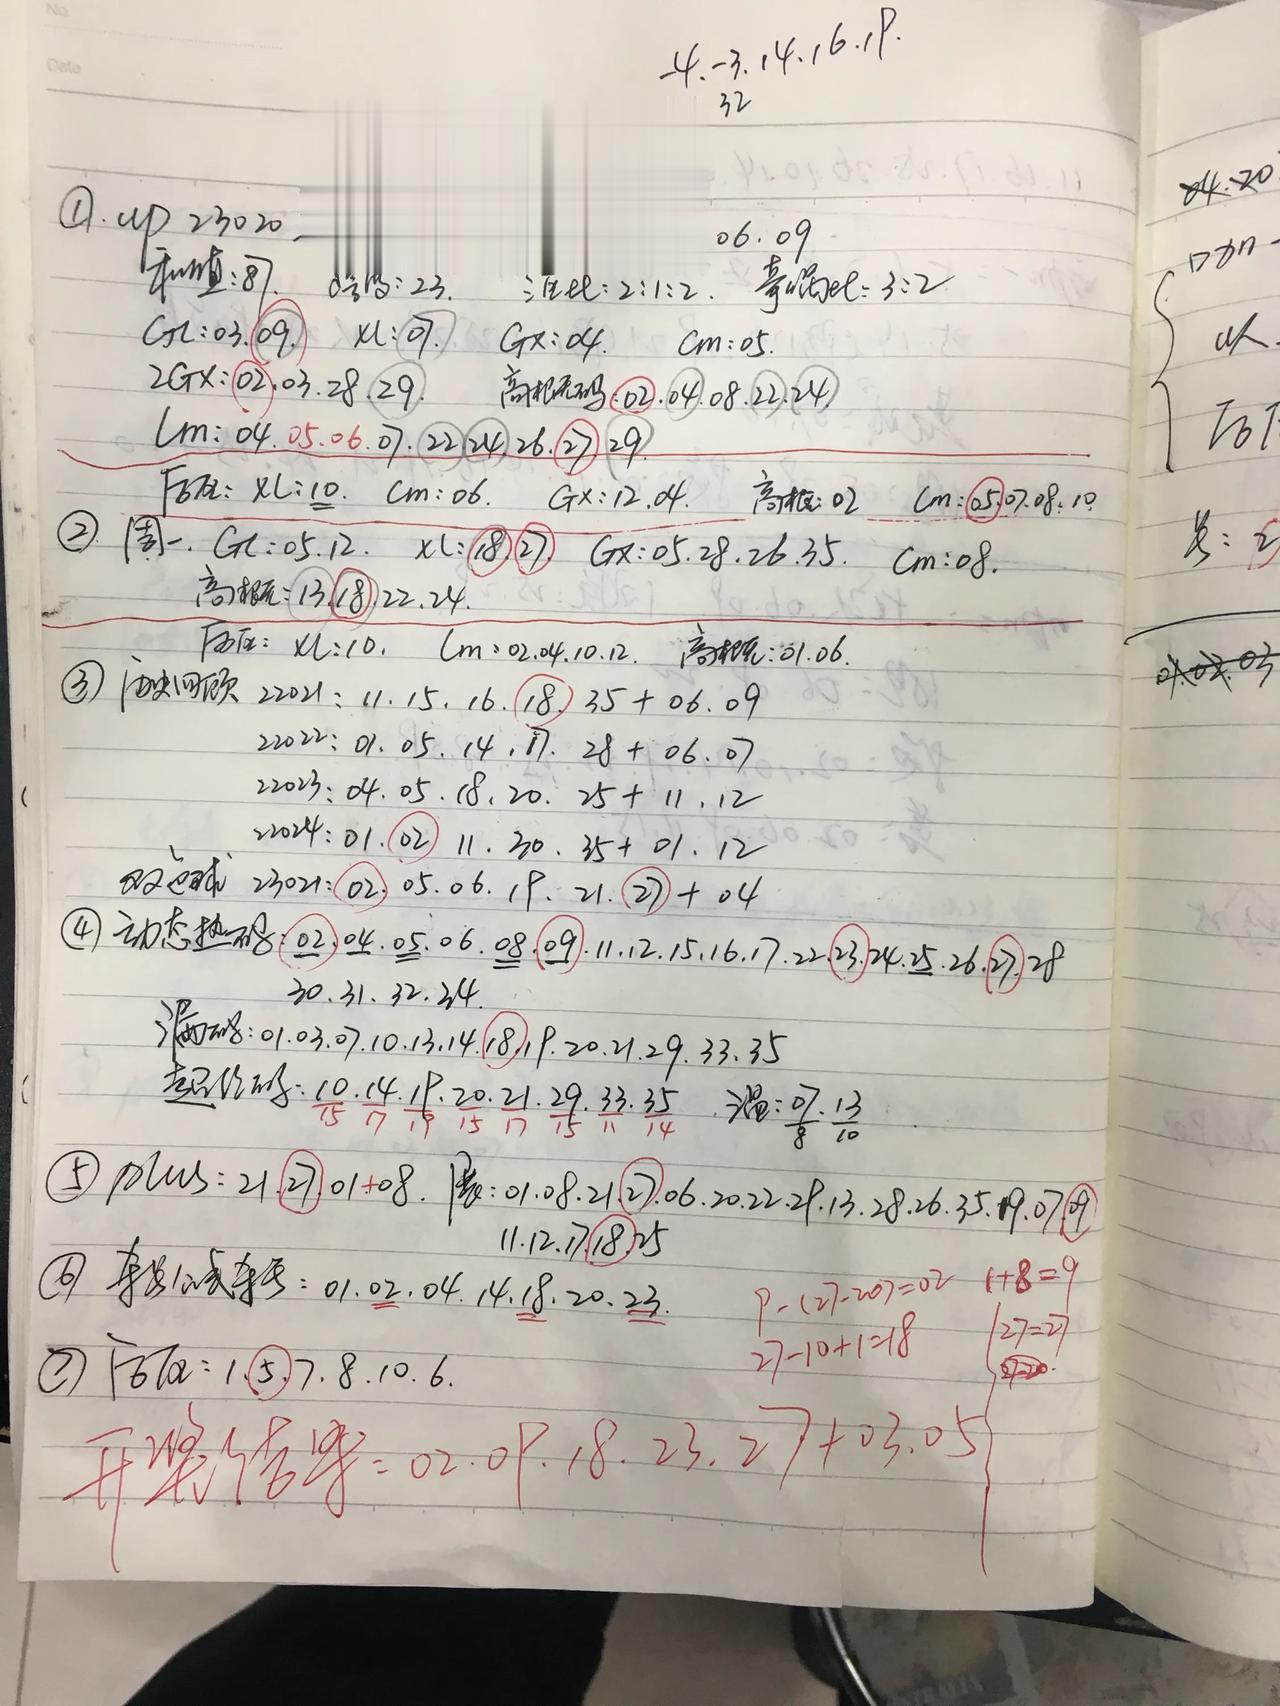 No
Date
-4.-3.14.16.19.
32
①.up 23020
06.09
和值:87. 跨度:23. 注比:2:1:2. 奇偶比:3:2
GL:03.09. XL:07. GX:04. Cm:05.
2GX:02.03.28.29. 高概率码:02.04.08.22.24
Lm:04.05.06.07.22.24.26.27.29.
后区: XL:10. Cm:06. GX:12.04. 高概:02 Cm:05.07.08.10
②周一. GL:05.12. XL:18.27 GX:05.28.26.35. Cm:08.
高概率:13.18.22.24.
后区: XL:10. Lm:02.04.10.12. 高概率:01.06.
③历史回顾 22021: 11.15.16.18.35+06.09
22022:01.05.14.17.28+06.07
22023:04.05.18.20.25+11.12
22024:01.02.11.30.35+01.12
双色球 23021:02.05.06.19.21.27+04
④动态热码:02.04.05.06.08.09.11.12.15.16.17.22.23.24.25.26.27.28
30.31.32.34.
01.03.07.10.13.14.18.19.20.21.29.33.35
10.14.19.20.21.29.33.35 温:07.13
15 17 19 15 17 15 11 14 8 10
⑤plus:21.27.01+08. 01.08.21.27.06.20.22.29.13.28.26.35.19.07.09
11.12.17.18.25
⑥ 01.02.04.14.18.20.23.
9-(27-20)=02 1+8=9
27-10+1=18 27=27
27-20
⑦后区:1.5.7.8.10.6.
开奖结果:02.09.18.23.27+03.05
04.20
以
后区
02.03